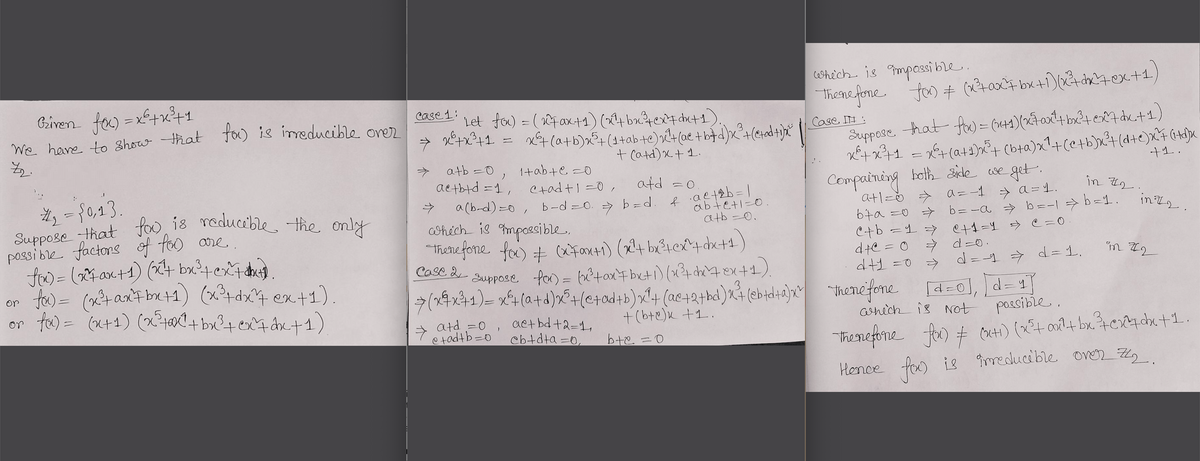 Given f(x) = x⁶+x³+1
We have to show that f(x) is irreducible over
ℤ₂.
ℤ₂ = {0,1}.
Suppose that f(x) is reducible the only
possible factors of f(x) are.
f(x) = (x²+ax+1) (x⁴+bx³+cx²+dx+1).
or f(x) = (x³+ax²+bx+1) (x³+dx²+ex+1).
or f(x) = (x+1) (x⁵+ax⁴+bx³+cx²+dx+1)
Case 1: Let f(x) = (x²+ax+1) (x⁴+bx³+cx²+dx+1).
⇒ x⁶+x³+1 = x⁶+(a+b)x⁵+(1+ab+c)x⁴+(ac+b+d)x³+(c+ad+1)x²
+(a+d)x+1.
⇒ a+b=0, 1+ab+c=0
ac+b+d=1, c+ad+1=0, a+d=0
⇒ a(b-d)=0, b-d=0 ⇒ b=d. & ac+2b=1
ab+c+1=0.
a+b=0.
which is impossible.
Therefore f(x) ≠ (x²+ax+1) (x⁴+bx³+cx²+dx+1)
Case 2 Suppose f(x) = (x³+ax²+bx+1) (x³+dx²+ex+1).
⇒ (x⁶+x³+1) = x⁶+(a+d)x⁵+(e+ad+b)x⁴+(ae+2+bd)x³+(eb+d+a)x²
+(b+e)x+1.
⇒ a+d=0, ae+bd+2=1,
e+ad+b=0 eb+d+a=0, b+e=0
which is impossible.
Therefore f(x) ≠ (x³+ax²+bx+1)(x³+dx²+ex+1)
Case III:
Suppose that f(x) = (x+1)(x⁵+ax⁴+bx³+cx²+dx+1)
∴ x⁶+x³+1 = x⁶+(a+1)x⁵+(b+a)x⁴+(c+b)x³+(d+c)x²+(1+d)x
+1.
Compairing both side we get.
a+1=0 ⇒ a=-1 ⇒ a=1. in ℤ₂
b+a=0 ⇒ b=-a ⇒ b=-1 ⇒ b=1. in ℤ₂
c+b=1 ⇒ c+1=1 ⇒ c=0
d+c=0 ⇒ d=0.
d+1=0 ⇒ d=-1 ⇒ d=1. in ℤ₂
Therefore d=0, d=1
which is not possible.
Therefore f(x) ≠ (x+1) (x⁵+ax⁴+bx³+cx²+dx+1.
Hence f(x) is irreducible over ℤ₂.